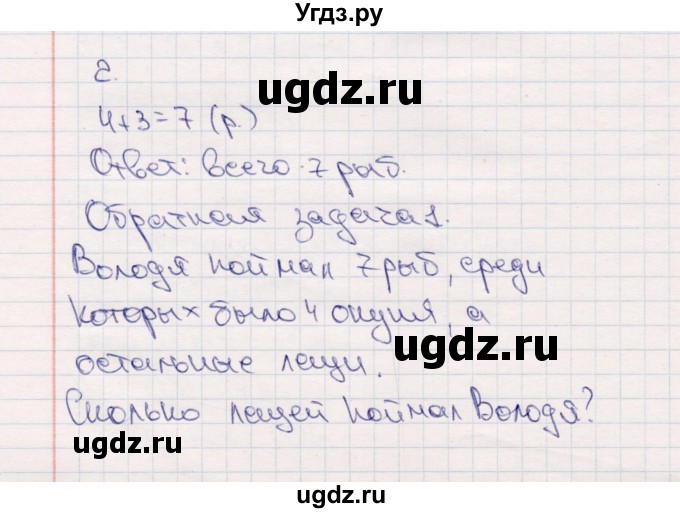 Угдз.ру
2.
ugdz.ru
4+3=7 (р.)
Ответ: всего 7 рыб.
Обратная задача 1.
Володя поймал 7 рыб, среди
которых было 4 окуня, а
ugdz.ru
остальные лещи.
Сколько лещей поймал Володя?
ugdz.ru
ugdz.ru